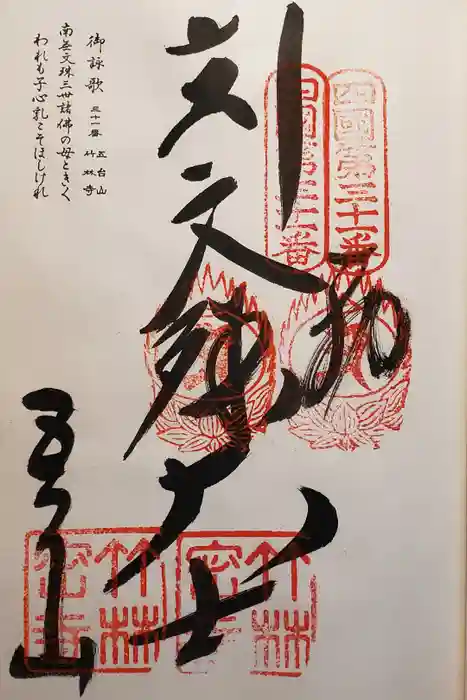 四國第三十一番
四國第三十一番
文殊大士
五台山
竹林密寺
竹林密寺
御詠歌 三十一番 五台山 竹林寺
南無文珠三世諸佛の母ときく
われも子心乳こそほしけれ